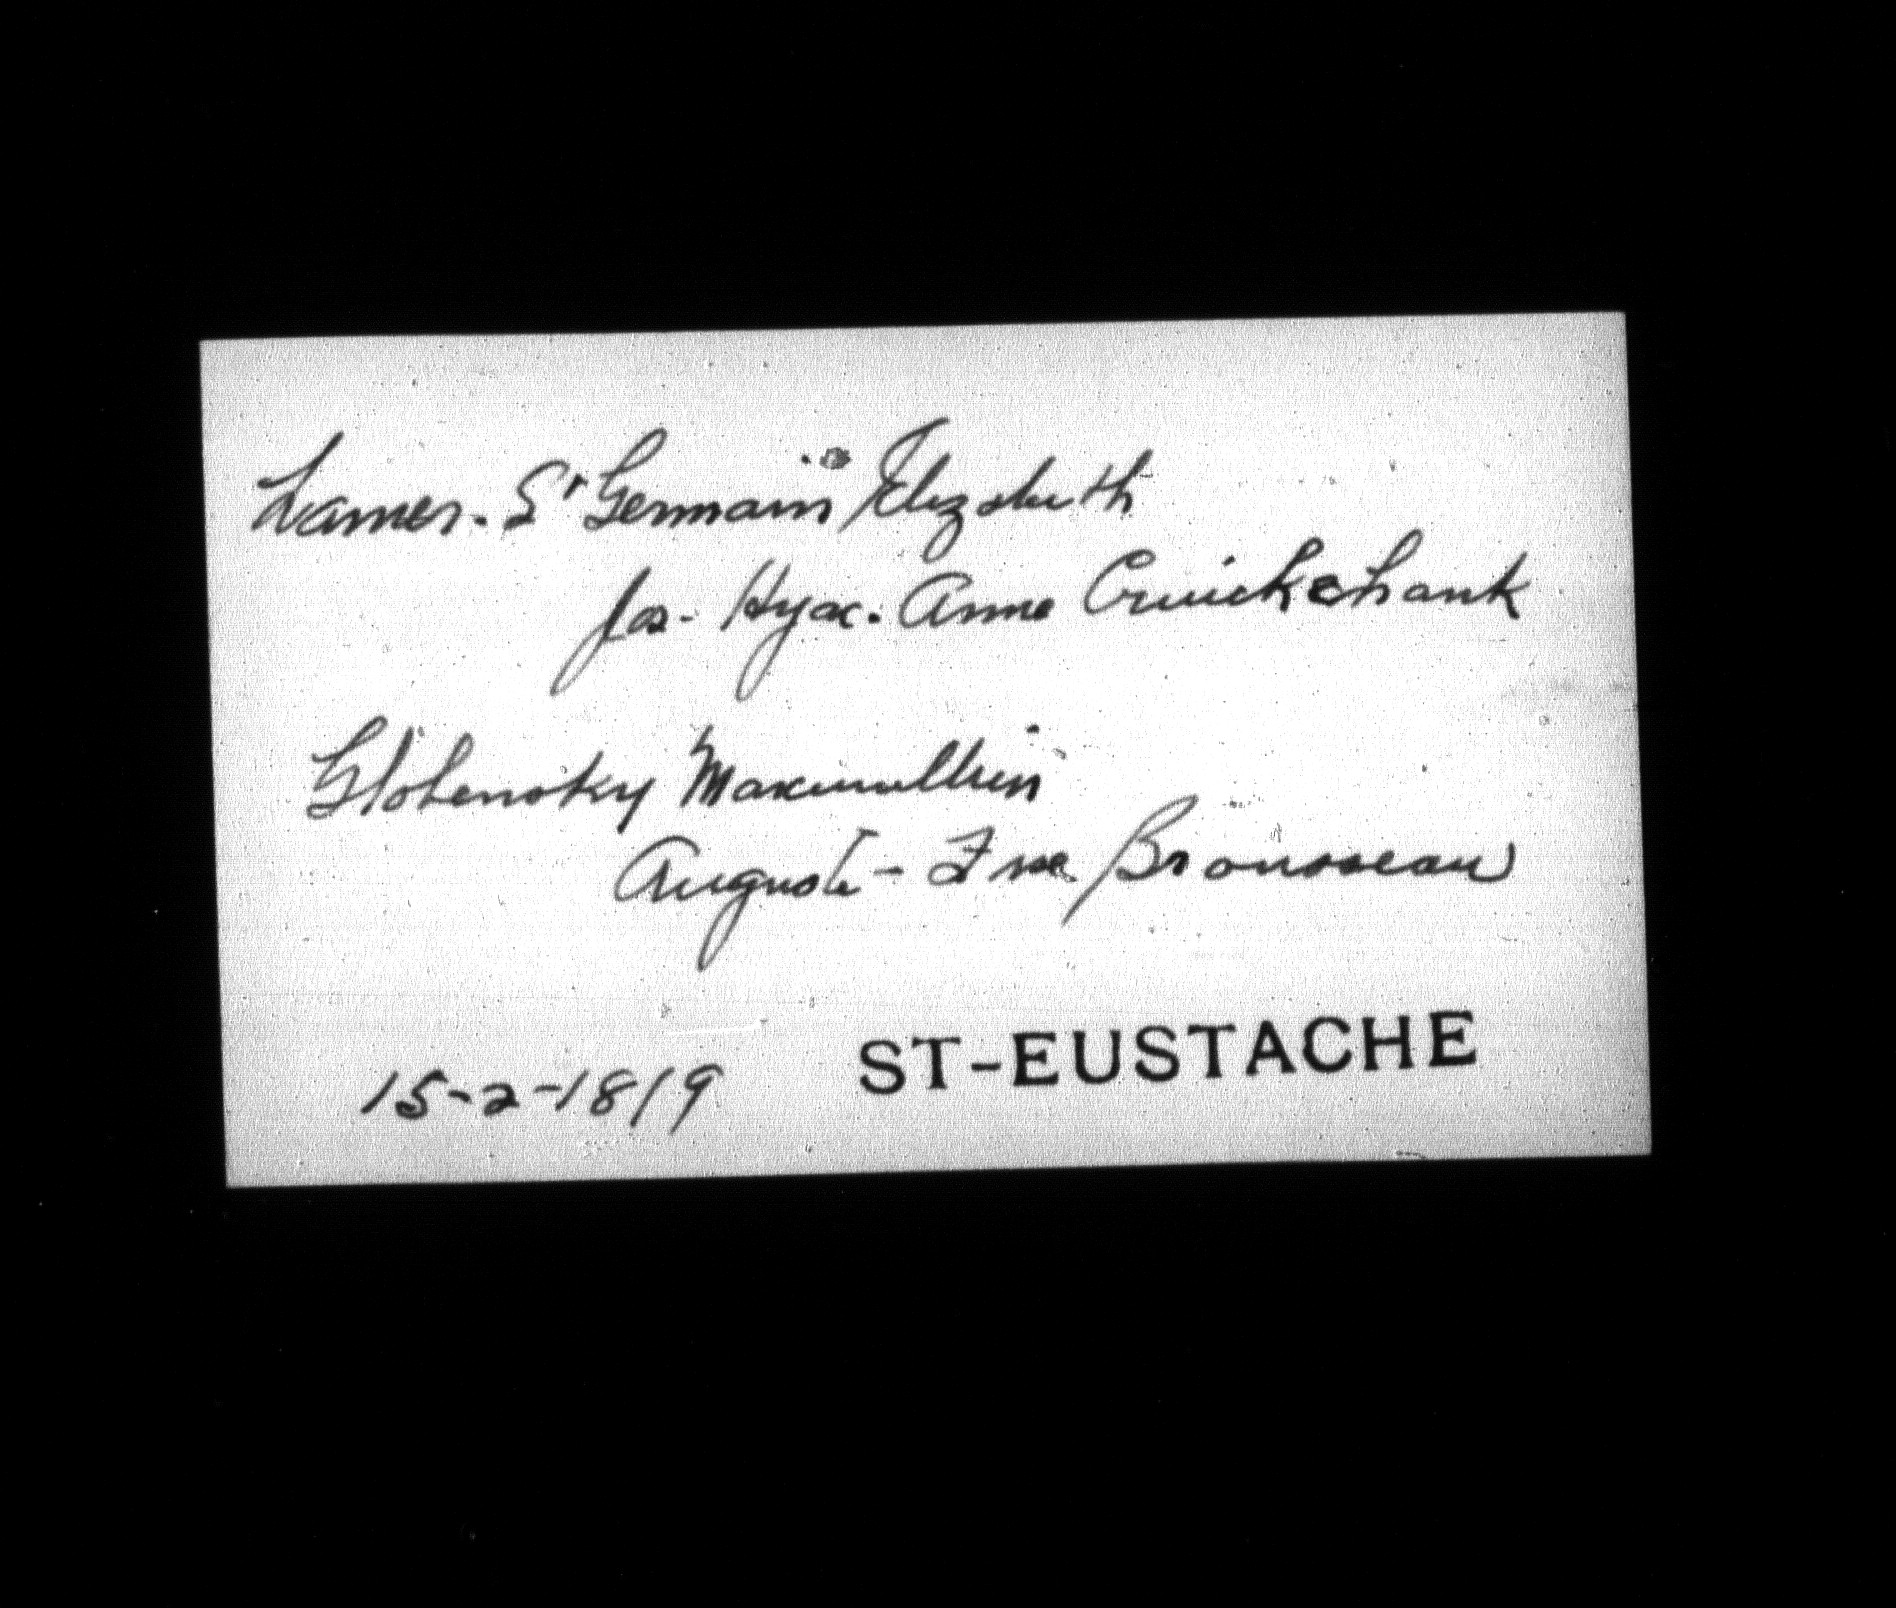 Lamer. St Germain Elizabeth
Jos- Hyac. Anne Cruickshank
Globensky Maximilien
August - Frse Brousseau
15-2-1819 ST-EUSTACHE